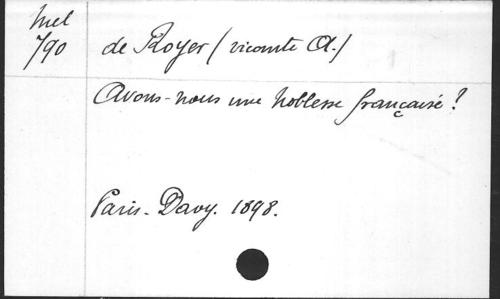 Mel
790
de Royer (vicomte A.)
Avons-nous une noblesse française?
Paris. Davy. 1898.